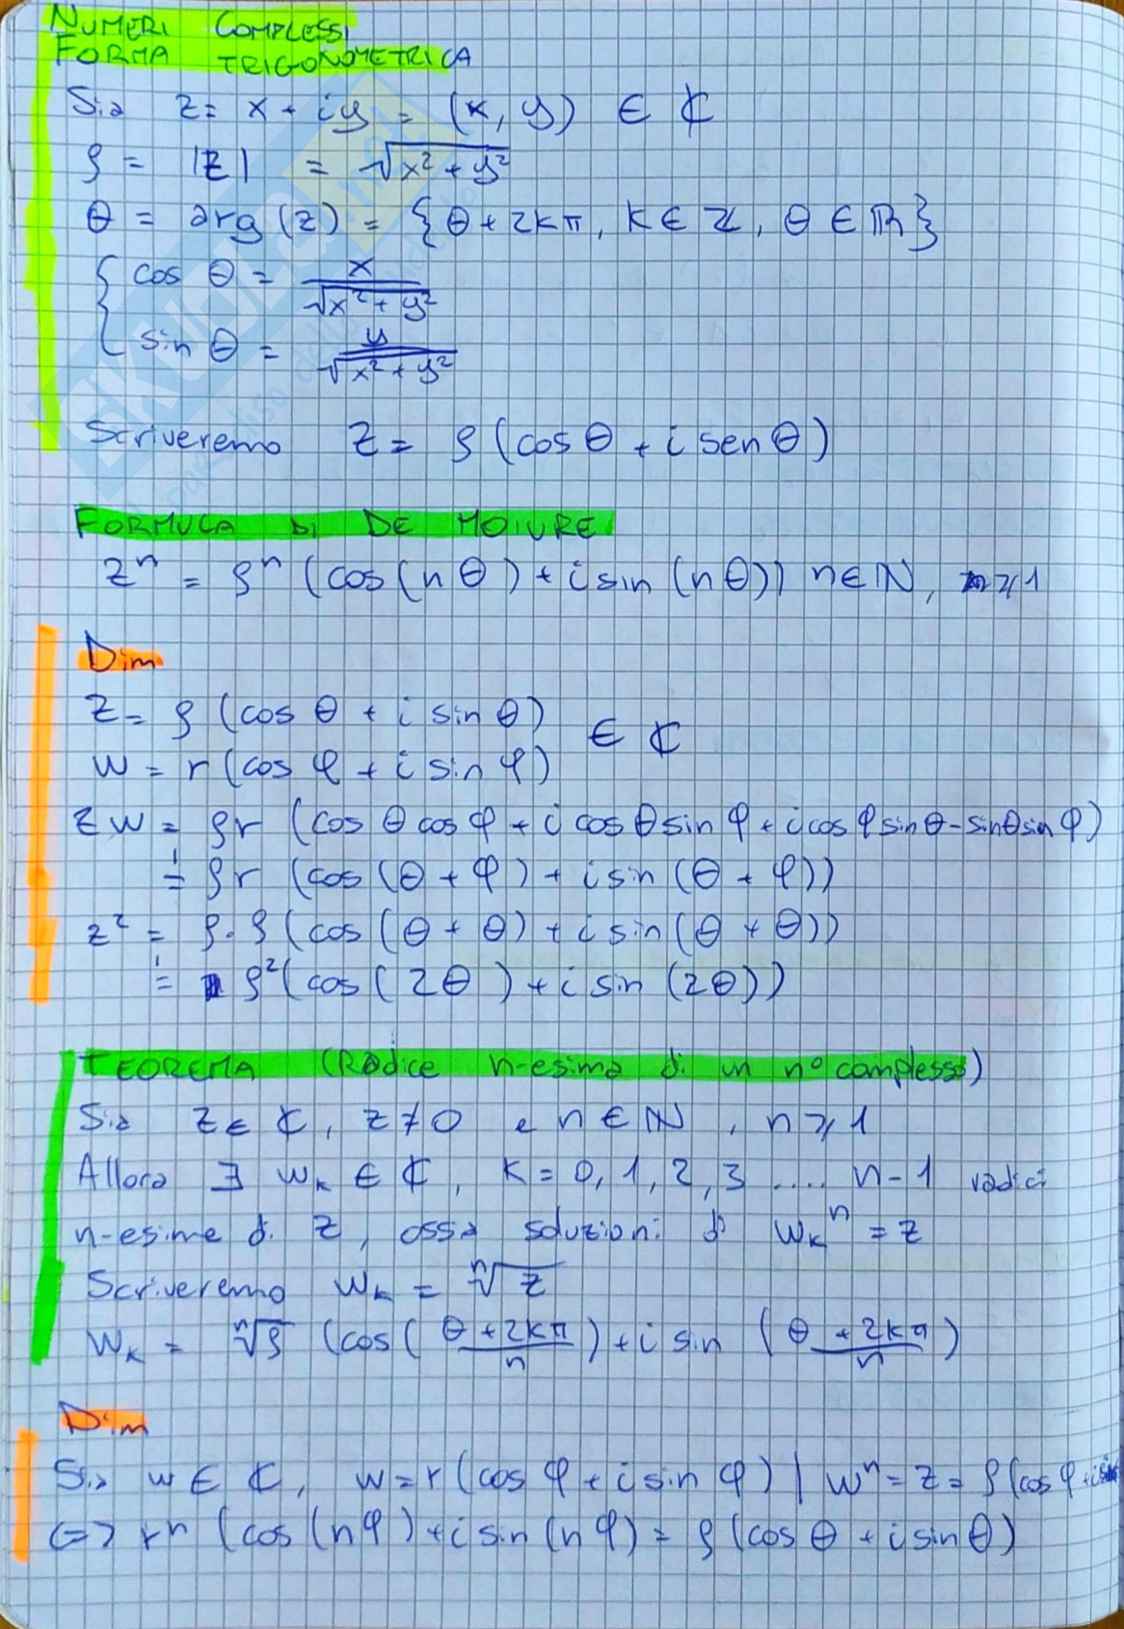 NUMERI COMPLESSI
FORMA TRIGONOMETRICA
Sia z = x + iy = (x, y) ∈ ℂ
ρ = |z| = √(x² + y²)
θ = arg(z) = {θ + 2kπ, k ∈ ℤ, θ ∈ ℝ}
{ cos θ = x / √(x² + y²)
sin θ = y / √(x² + y²)
Scriveremo z = ρ (cos θ + i sen θ)
FORMULA DI DE MOIVRE
zⁿ = ρⁿ (cos(nθ) + i sin(nθ)) n ∈ ℕ, n ≥ 1
Dim
z = ρ (cos θ + i sin θ)
∈ ℂ
w = r (cos φ + i sin φ)
zw = ρr (cos θ cos φ + i cos θ sin φ + i cos φ sin θ - sin θ sin φ)
= ρr (cos (θ + φ) + i sin (θ + φ))
z² = ρ · ρ (cos (θ + θ) + i sin (θ + θ))
= ρ² (cos (2θ) + i sin (2θ))
TEOREMA (Radice n-esima di un n° complesso)
Sia z ∈ ℂ, z ≠ 0 e n ∈ ℕ, n ≥ 1
Allora ∃ wₖ ∈ ℂ, k = 0, 1, 2, 3 .... n-1 radici
n-esime di z, ossia soluzioni di wₖⁿ = z
Scriveremo wₖ = ⁿ√z
wₖ = ⁿ√ρ (cos((θ + 2kπ) / n) + i sin ((θ + 2kπ) / n)
Dim
Sia w ∈ ℂ, w = r (cos φ + i sin φ) | wⁿ = z = ρ (cos φ + i sin
⇔ rⁿ (cos (nφ) + i sin (nφ) = ρ (cos θ + i sin θ)